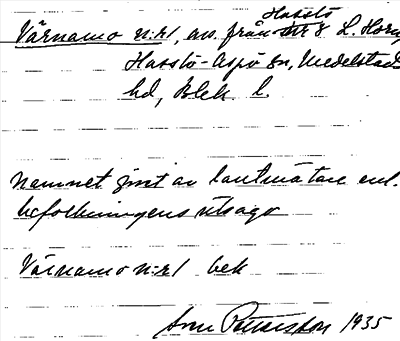 Hasslö
Värnamo n:r 1, av. från nr 8 L. Horn
Hasslö-Aspö sn, Medelstad
hd, Blek. l.
Namnet givet av lantmätare enl.
befolkningens utsago
Värnamo n:r 1 bek
Pettersson 1935